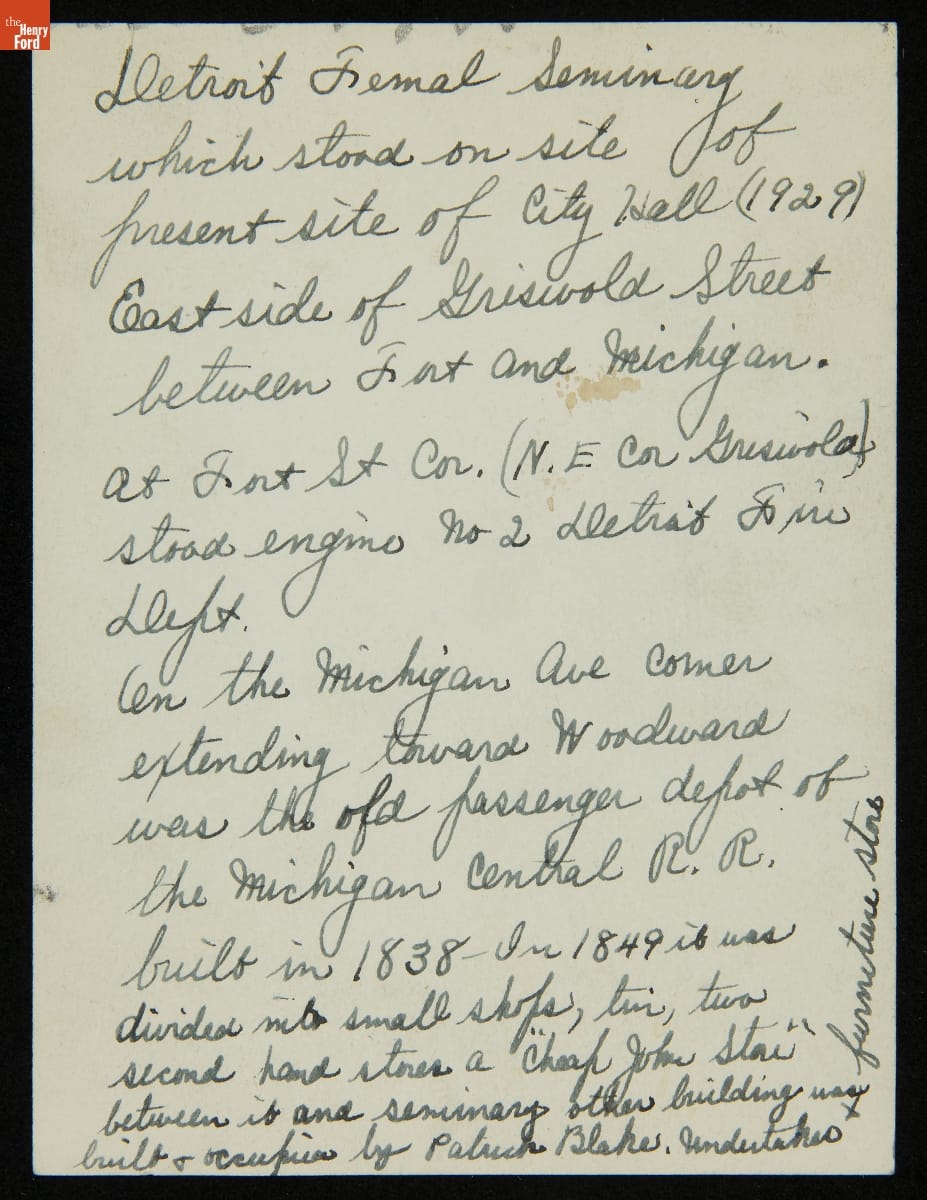 the
Henry
Ford
Detroit Femal Seminary
which stood on site of
present site of City Hall (1929)
East side of Griswold Street
between Fort and Michigan.
At Fort St Cor. (N.E Cor Griswold)
stood engine No 2 Detroit Fire
Dept.
On the Michigan Ave corner
extending toward Woodward
was the old passenger depot of
the Michigan Central R. R.
built in 1838 - In 1849 it was
divided into small shops, tin, two
second hand stores a "Cheap John Store"
between it and seminary other building was
built & occupied by Patrick Blake. Undertaker
+ furniture store